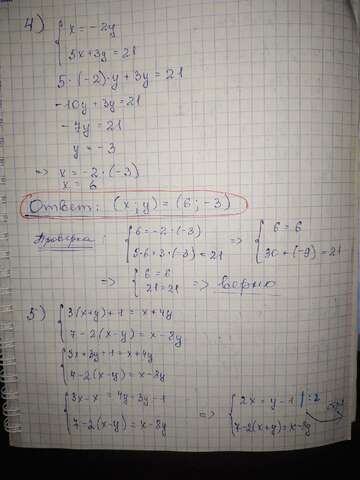 4) { x = -2y
5x+3y = 21
5·(-2)·y + 3y = 21
-10y + 3y = 21
-7y = 21
y = -3
=> x = -2·(-3)
x = 6
Ответ: (x; y) = (6; -3)
Проверка: { 6 = -2·(-3) => { 6 = 6
5·6+3·(-3) = 21 30 + (-9) = 21
=> { 6 = 6
21 = 21 => верно
5) { 3(x+y)+1 = x+4y
7-2(x-y) = x-8y
{ 3x+3y+1 = x+4y
7-2(x-y) = x-8y
{ 3x-x = 4y-3y-1 => { 2x = y-1 | :2
7-2(x-y) = x-8y 7-2(x+y) = x-8y